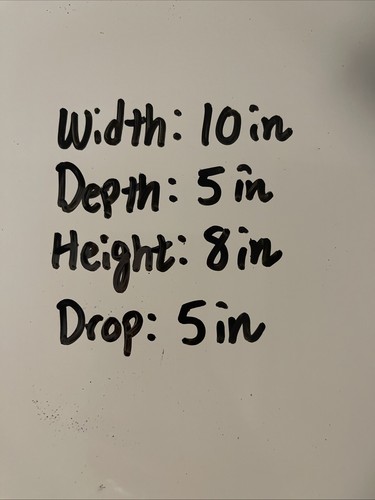 Width: 10 in
Depth: 5 in
Height: 8 in
Drop: 5 in